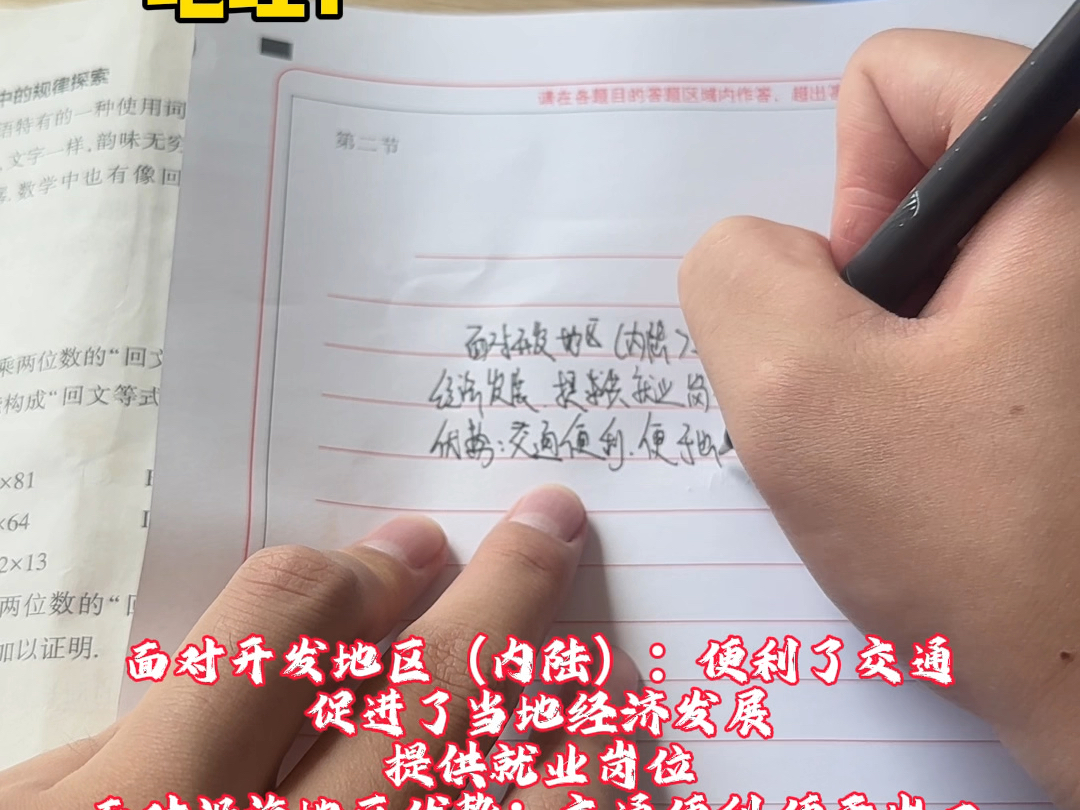 中的规律探索
语特有的一种使用词
文字一样,韵味无穷
数学中也有像回
乘两位数的“回文
构成“回文等式
×81
×64
2×13
两位数的“回
加以证明.
请在各题目的答题区域内作答,超出
第二节
面对开发地区(内陆):
经济发展 提供就业岗
优势:交通便利.便于出
面对开发地区(内陆):便利了交通
促进了当地经济发展
提供就业岗位
面对沿海地区优势:交通便利便于出口